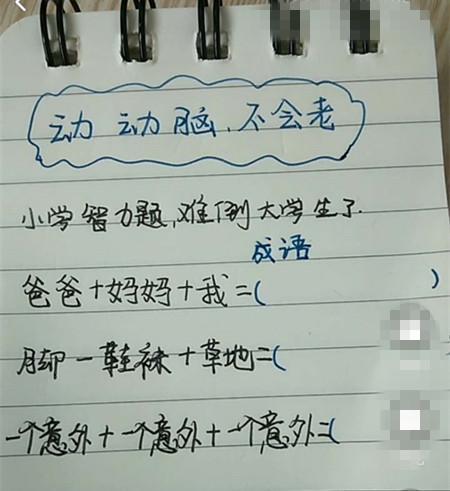 动动脑,不会老
小学智力题,难倒大学生了.
成语
爸爸+妈妈+我=( )
脚-鞋袜+草地=(
一个意外+一个意外+一个意外=(